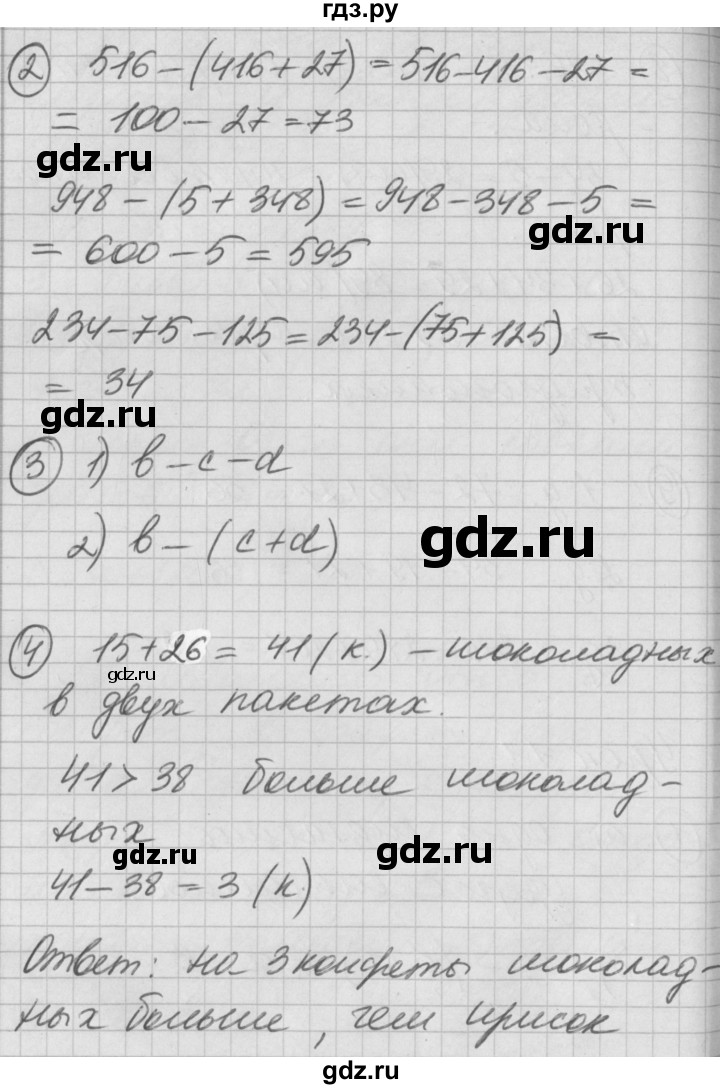 гдз.ру
2 516-(416+27)=516-416-27=
= 100-27=73
gdz.ru
948-(5+348)=948-348-5=
gdz.ru
= 600-5=595
234-75-125=234-(75+125) =
= 34
gdz.ru
3 1) b-c-d
gdz.ru
2) b-(c+d)
4 15+26= 41(к.) - шоколадных
gdz.ru
в двух пакетах.
41>38 больше шоколад-
ных
gdz.ru
gdz.ru
41-38=3(к)
Ответ: на 3 конфеты шоколад-
ных больше, чем ирисок
gdz.ru